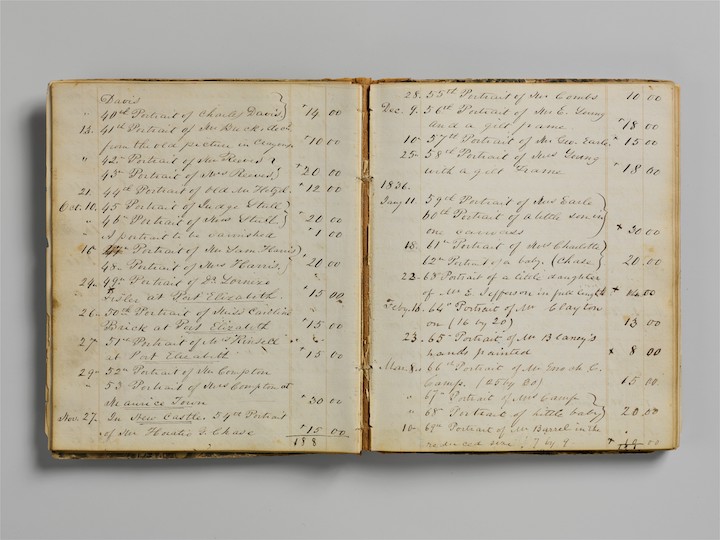 Davis
" 40th Portrait of Charles Davis } " 14 00
13. 41th Portrait of Mr
from the old picture in Crayons " 10 00
" 42 Portrait of Mr Reeves }
43 Portrait of Mrs Reeves } " 20 00
21. 44th Portrait of old Mr Hotzel. " 12 00
Oct. 10. 45 Portrait of Judge Stull }
" 46 Portrait of Mrs Stull } " 20 00
A portrait to be varnished " 1 00
16 47 Portrait of Mr Sam Harris }
48 Portrait of Mrs Harris. } " 20 00
24. 49th Portrait of Dr
Fisler at Port Elizabeth. " 15 00
26. 50th Portrait of Miss
Brick at Port Elizabeth " 15 00
27. 51st Portrait of
at Port Elizabeth " 15 00
29. 52 Portrait of Mr Compton
" 53 Portrait of Mrs Compton at
Maurice Town " 30 00
Nov. 27. In New Castle. 54th Portrait
of Mr Horatio G. Chase " 15 00
188
28. 55th Portrait of Mr Combs 10 00
Dec. 9. 56th Portrait of Mr E. Young
and a gilt frame " 18 00
10 57th Portrait of Mr Geo. Earle. " 15 00
25. 58th Portrait of Mrs Young
with a gilt Frame " 18 00
1836.
Jany 11. 59th Portrait of Mrs Earle }
60th Portrait of a little son in }
one canvass + 30 00
18. 61st Portrait of Mrs Charlotte }
62 Portrait of a baby. (Chase } 20 00
22. 63 Portrait of a little daughter
of Mr E. Jefferson in full length + 00
Feby 13. 64th Portrait of Mr Clayton
on (16 by 20) 13 00
23. 65 Portrait of Mr Blaney's
hands painted + 8 00
Mar. 66th Portrait of Mr Enoch C.
Camp. (25 by 30) 15 00
" 67 Portrait of Mrs Camp }
" 68 Portrait of little baby } 20 00
10. 69th Portrait of Mr Barrel in the
reduced size. 7 by 9 + 10 00